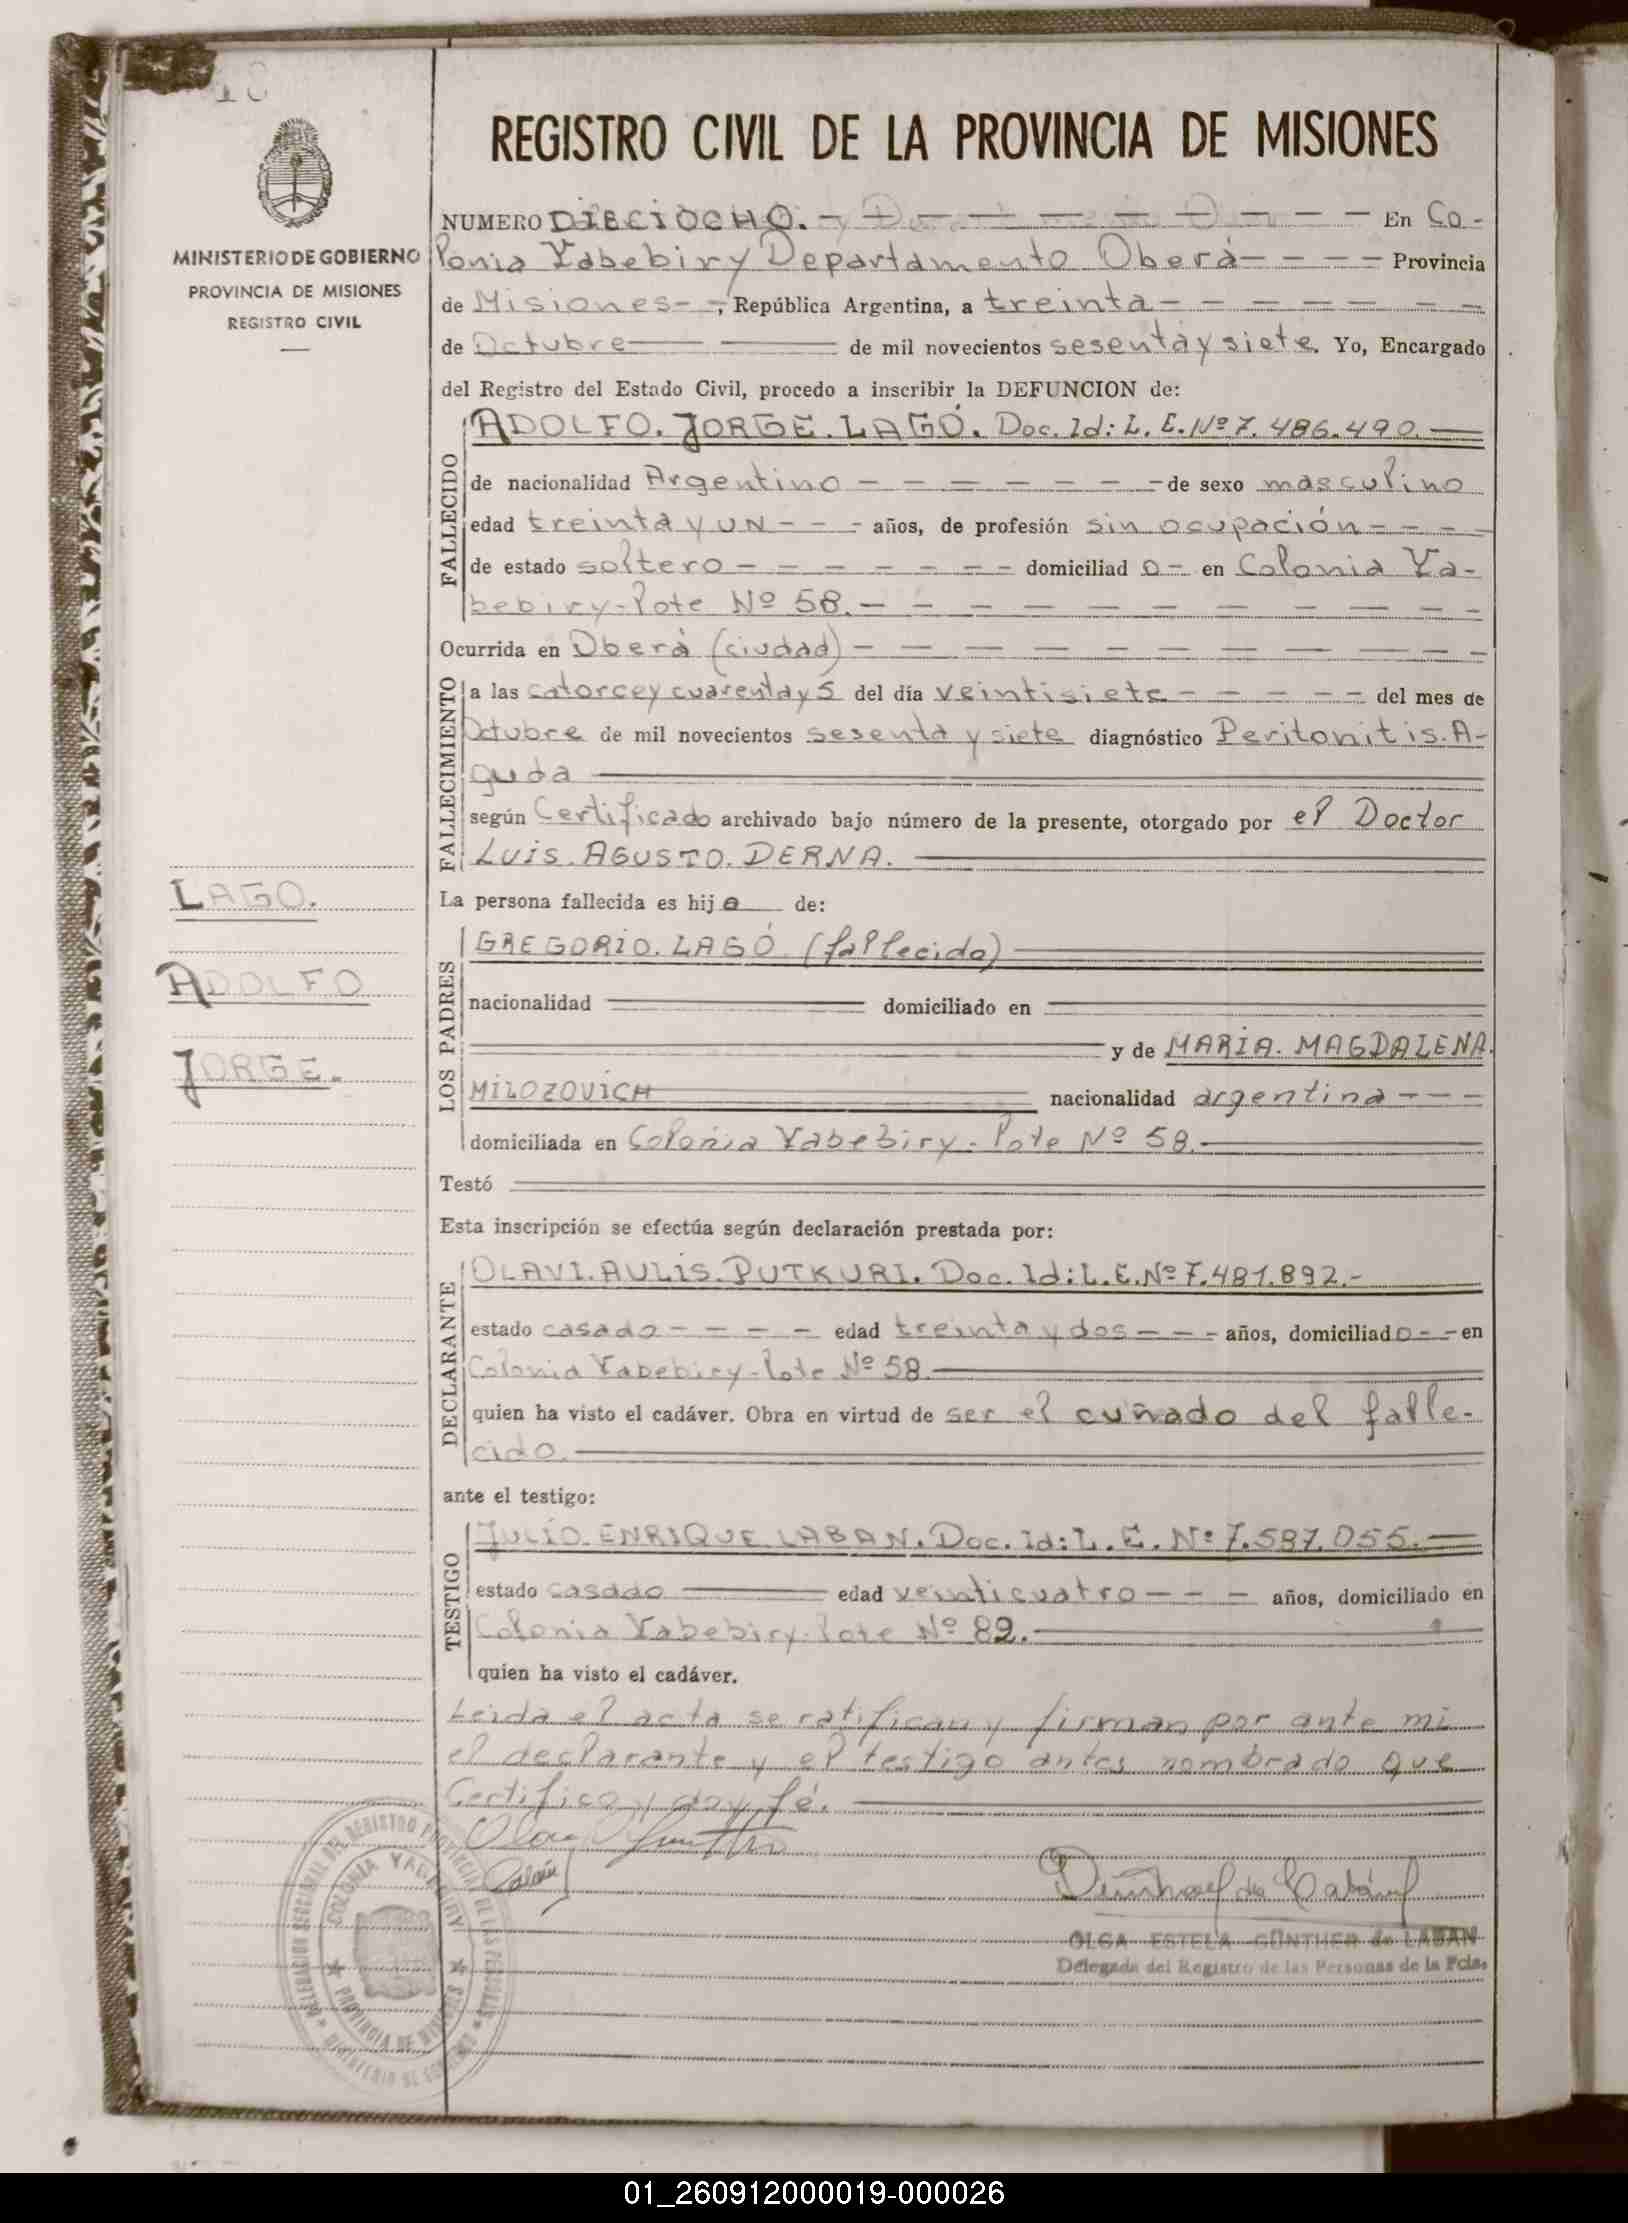 REGISTRO CIVIL DE LA PROVINCIA DE MISIONES
MINISTERIO DE GOBIERNO
PROVINCIA DE MISIONES
REGISTRO CIVIL
NUMERO DIECIOCHO. - En Co-
lonia Yabebiry Departamento Oberá - Provincia
de Misiones - , República Argentina, a treinta -
de Octubre de mil novecientos sesenta y siete. Yo, Encargado
del Registro del Estado Civil, procedo a inscribir la DEFUNCION de:
FALLECIDO
ADOLFO. JORGE. LAGÓ. Doc. Id: L. E. Nº 7.486.490.
de nacionalidad Argentino - de sexo masculino
edad treinta y un - años, de profesión sin ocupación -
de estado soltero - domiciliad o - en Colonia Ya-
bebiry - lote Nº 58. -
Ocurrida en Oberá (ciudad) -
FALLECIMIENTO
a las catorce y cuarenta y 5 del día veintisiete - del mes de
Octubre de mil novecientos sesenta y siete diagnóstico Peritonitis. A-
guda
según Certificado archivado bajo número de la presente, otorgado por el Doctor
LUIS. AGUSTO. DERNA.
LAGO.
ADOLFO
JORGE.
La persona fallecida es hij o de:
LOS PADRES
GREGORIO. LAGÓ. (fallecido)
nacionalidad domiciliado en
y de MARIA. MAGDALENA.
MILOZOVICH nacionalidad argentina -
domiciliada en Colonia Yabebiry - lote Nº 58.
Testó
Esta inscripción se efectúa según declaración prestada por:
DECLARANTE
OLAVI. AULIS. PUTKURI. Doc. Id: L. E. Nº 7.481.892.-
estado casado - edad treinta y dos - años, domiciliado - en
Colonia Yabebiry - lote Nº 58.
quien ha visto el cadáver. Obra en virtud de ser el cuñado del falle-
cido.
ante el testigo:
TESTIGO
JULIO. ENRIQUE. LABAN. Doc. Id: L. E. Nº 7.587.055.
estado casado edad veinticuatro - años, domiciliado en
Colonia Yabebiry - lote Nº 82.
quien ha visto el cadáver.
Leida el acta se ratifican y firman por ante mi
el declarante y el testigo antes nombrado que
Certifico y doy fé.
OLGA ESTELA GÜNTHER de LABAN
Delegada del Registro de las Personas de la Pcia.
COLONIA YABEBIRY
PROVINCIA DE MISIONES
01_260912000019-000026